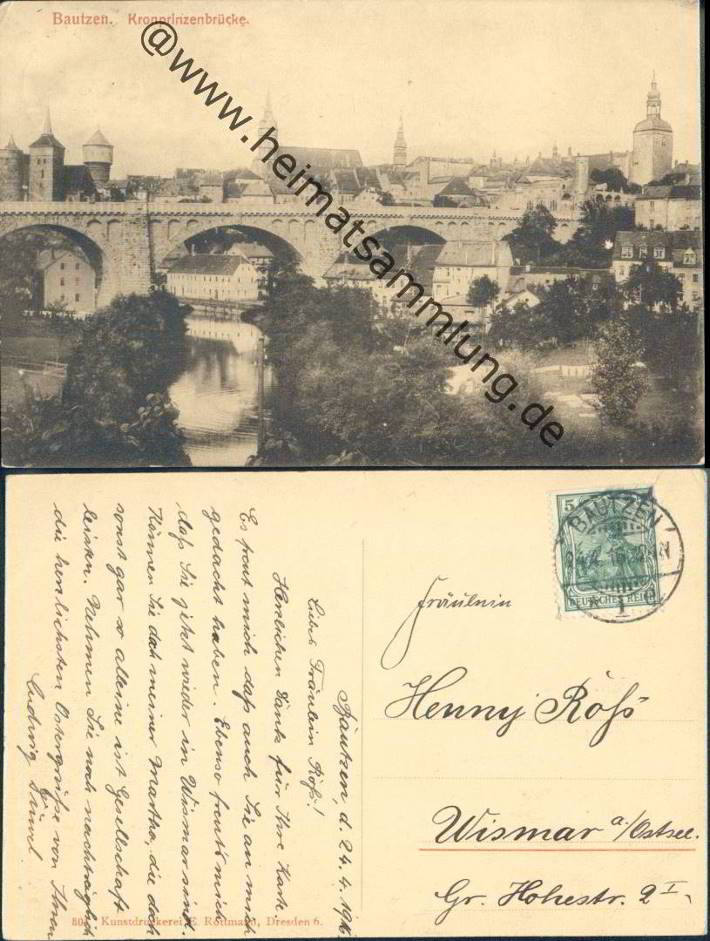 Bautzen. Kronprinzenbrücke.
@www.heimatsammlung.de
BAUTZEN
DEUTSCHES REICH
Fräulein
Henny Röß
Wismar a/Ostsee.
Gr. Hohestr. 2 I.
Bautzen, d. 24.4.1916.
Liebes Fräulein Röß!
Herzlichen Dank für Ihre Karte.
Es freut mich daß auch Sie an mich
gedacht haben. Ebenso freut's mich
daß Sie jetzt wieder in Wismar sind.
Können Sie doch meiner Martha, die doch
sonst gar so alleine ist Gesellschaft
leisten. Nehmen Sie noch nachträglich
die herzlichsten Ostergrüße von Ihrem
Ludwig
Kunstdruckerei E. Rottmann, Dresden 6.